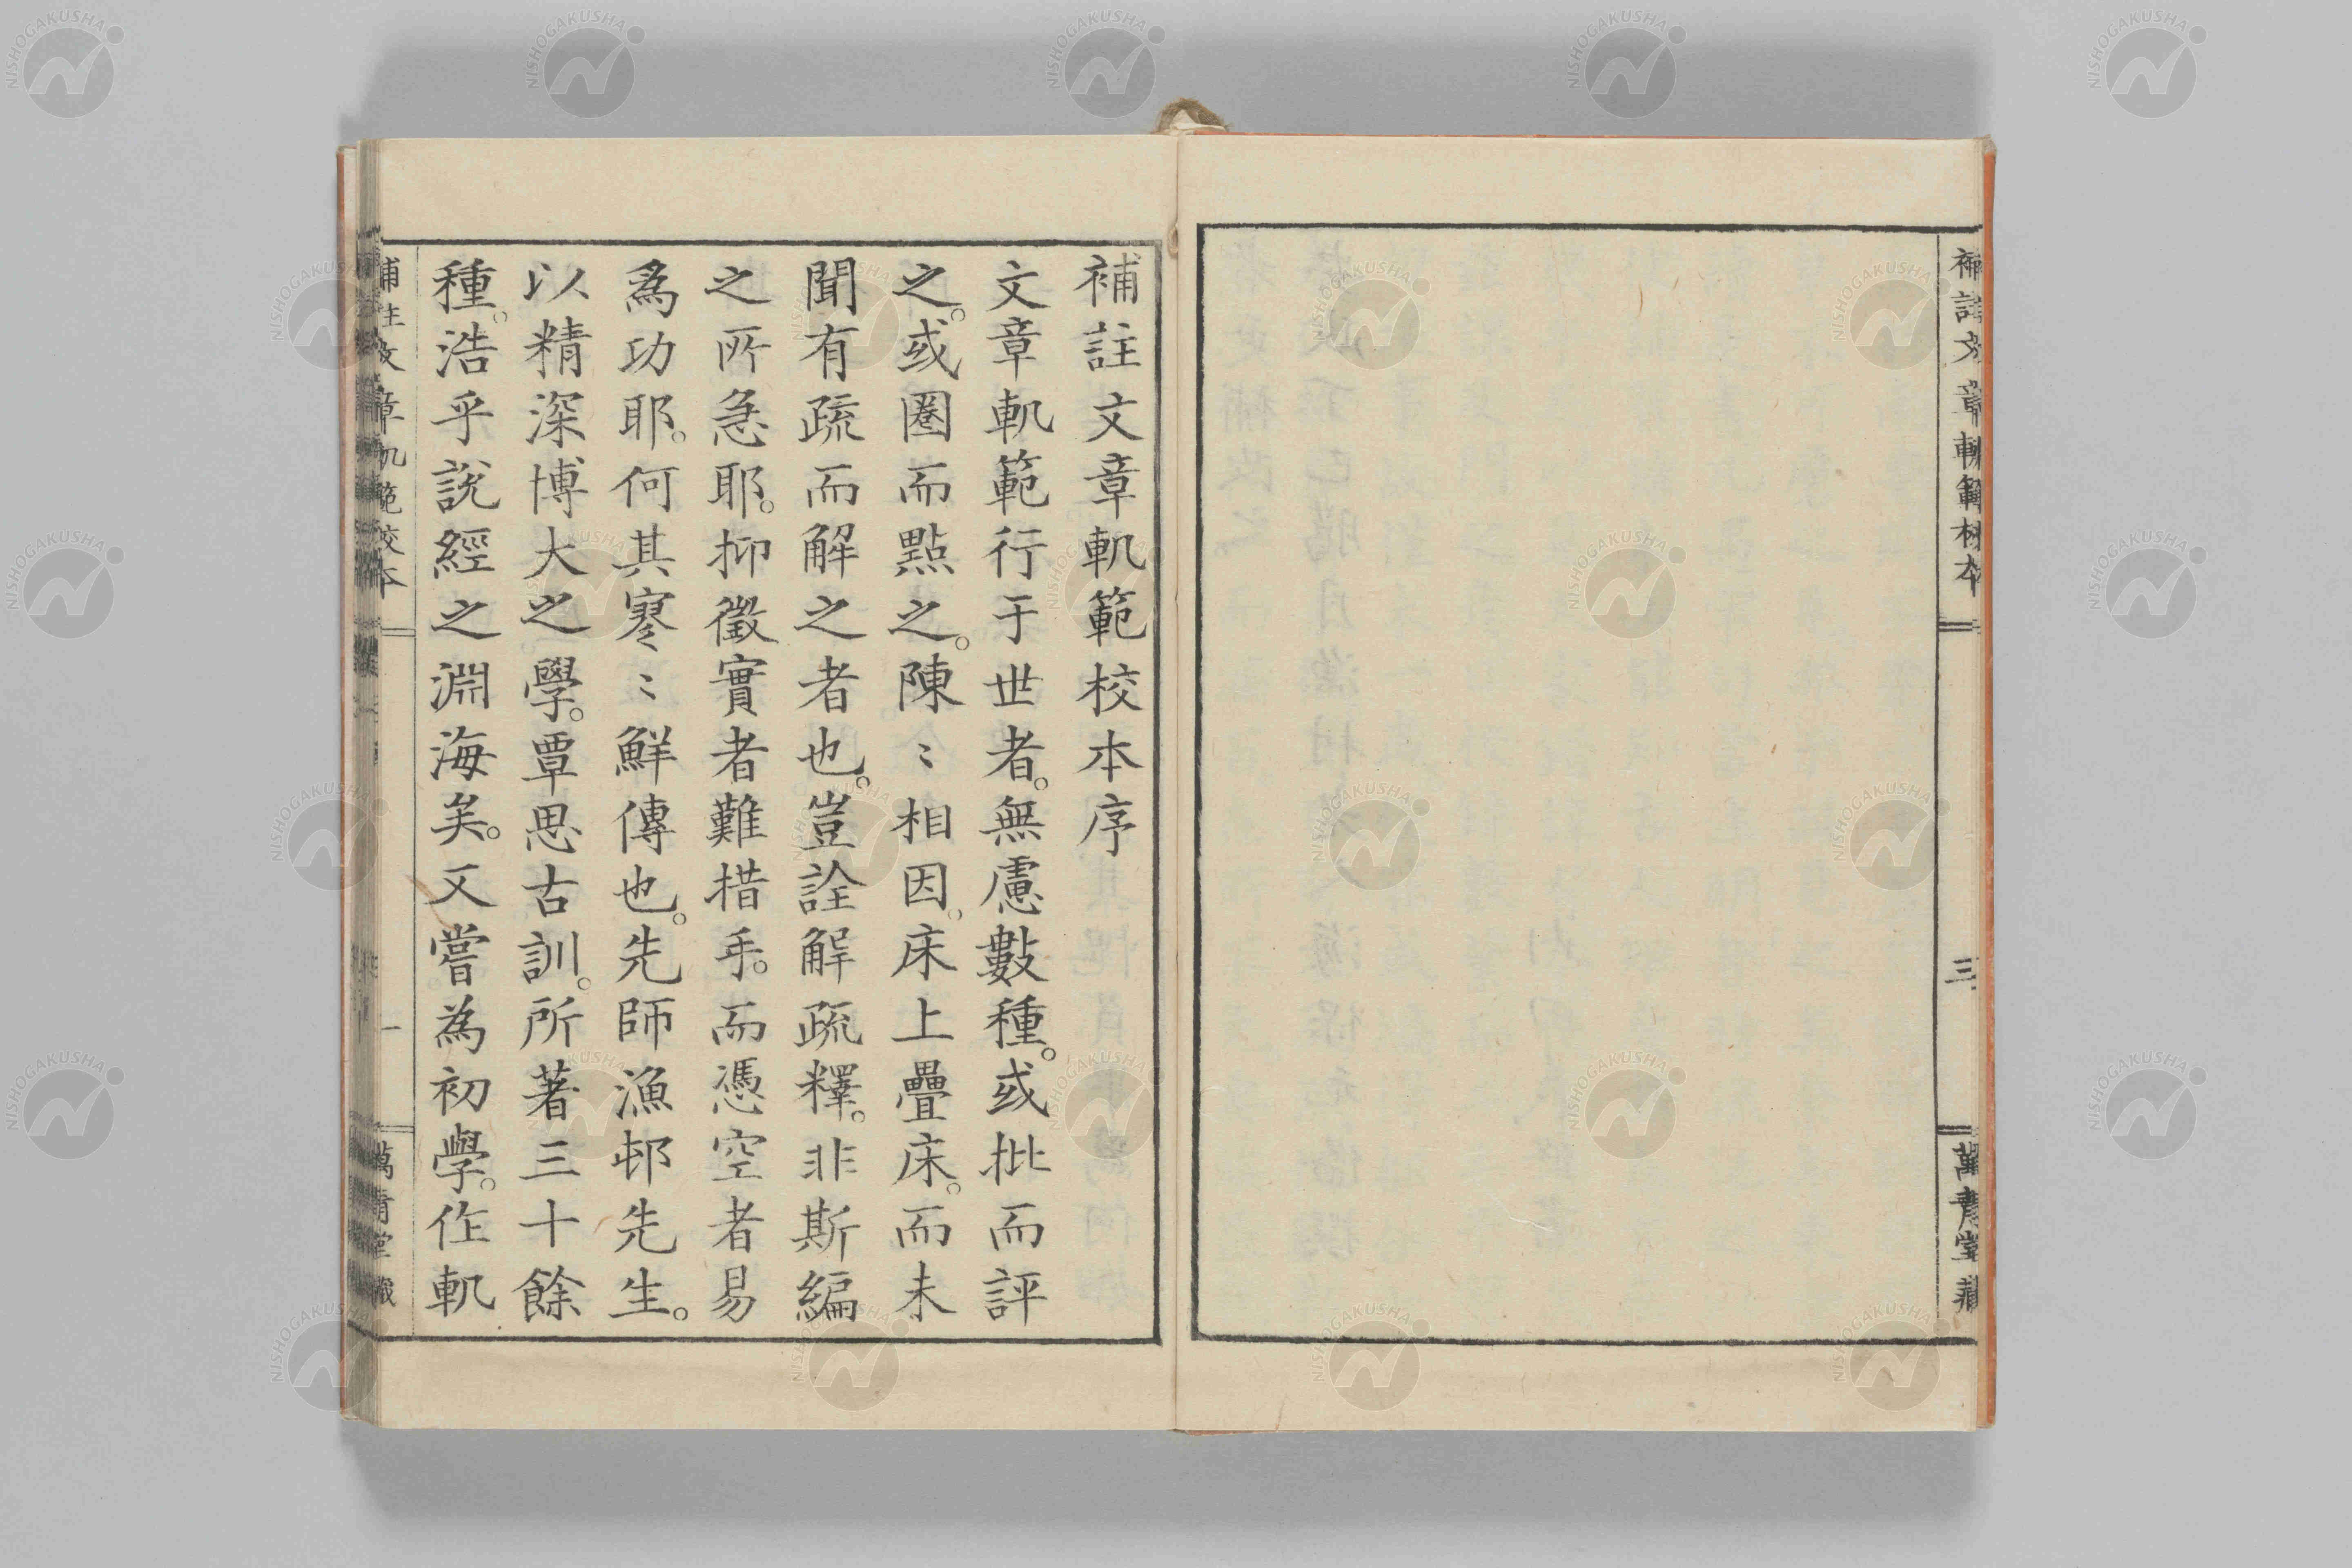 補註文章軌範校本
三
萬青堂藏
補註文章軌範校本序
文章軌範行于世者。無慮數種。或批而評
之。或圈而點之。陳〻相因。床上疊床。而未
聞有疏而解之者也。豈詮解疏釋。非斯編
之所急耶。抑徵實者難措手。而憑空者易
爲功耶。何其寥〻鮮傳也。先師漁邨先生。
以精深博大之學。覃思古訓。所著三十餘
種。浩乎說經之淵海矣。又嘗為初學。作軌
補註文章軌範校本
一
萬青堂藏